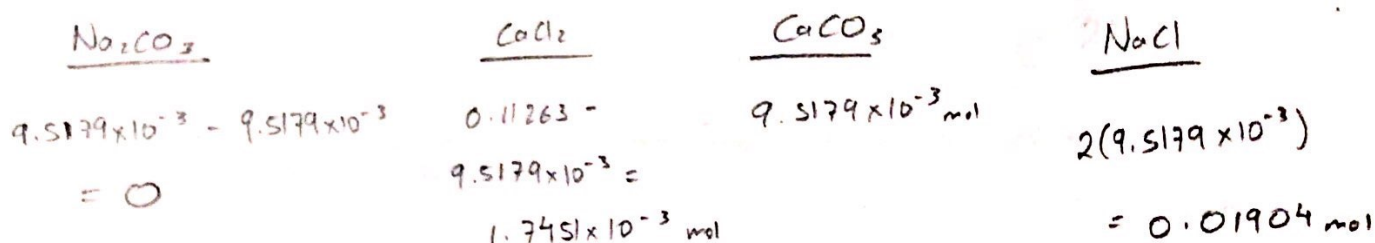 Na₂CO₃
9.5179×10⁻³ - 9.5179×10⁻³
= 0
CaCl₂
0.11263 -
9.5179×10⁻³ =
1.7451×10⁻³ mol
CaCO₃
9.5179×10⁻³ mol
NaCl
2(9.5179×10⁻³)
= 0.01904 mol